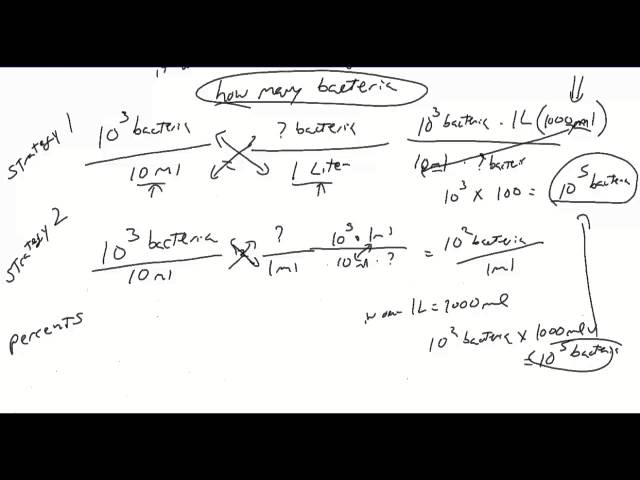 how many bacteria
Strategy 1
10³ bacteria / 10 ml
? bacteria / 1 Liter
10³ bacteria · 1L (1000 ml) / 10ml · ? bacteri
10³ x 100 = 10⁵ bacteria
Strategy 2
10³ bacteria / 10ml
? / 1ml
10³ · 1ml / 10 ml · ?
= 10² bacteria / 1ml
1L = 1000 ml
10² bacteria x 1000 ml
= 10⁵ bacteria
percents